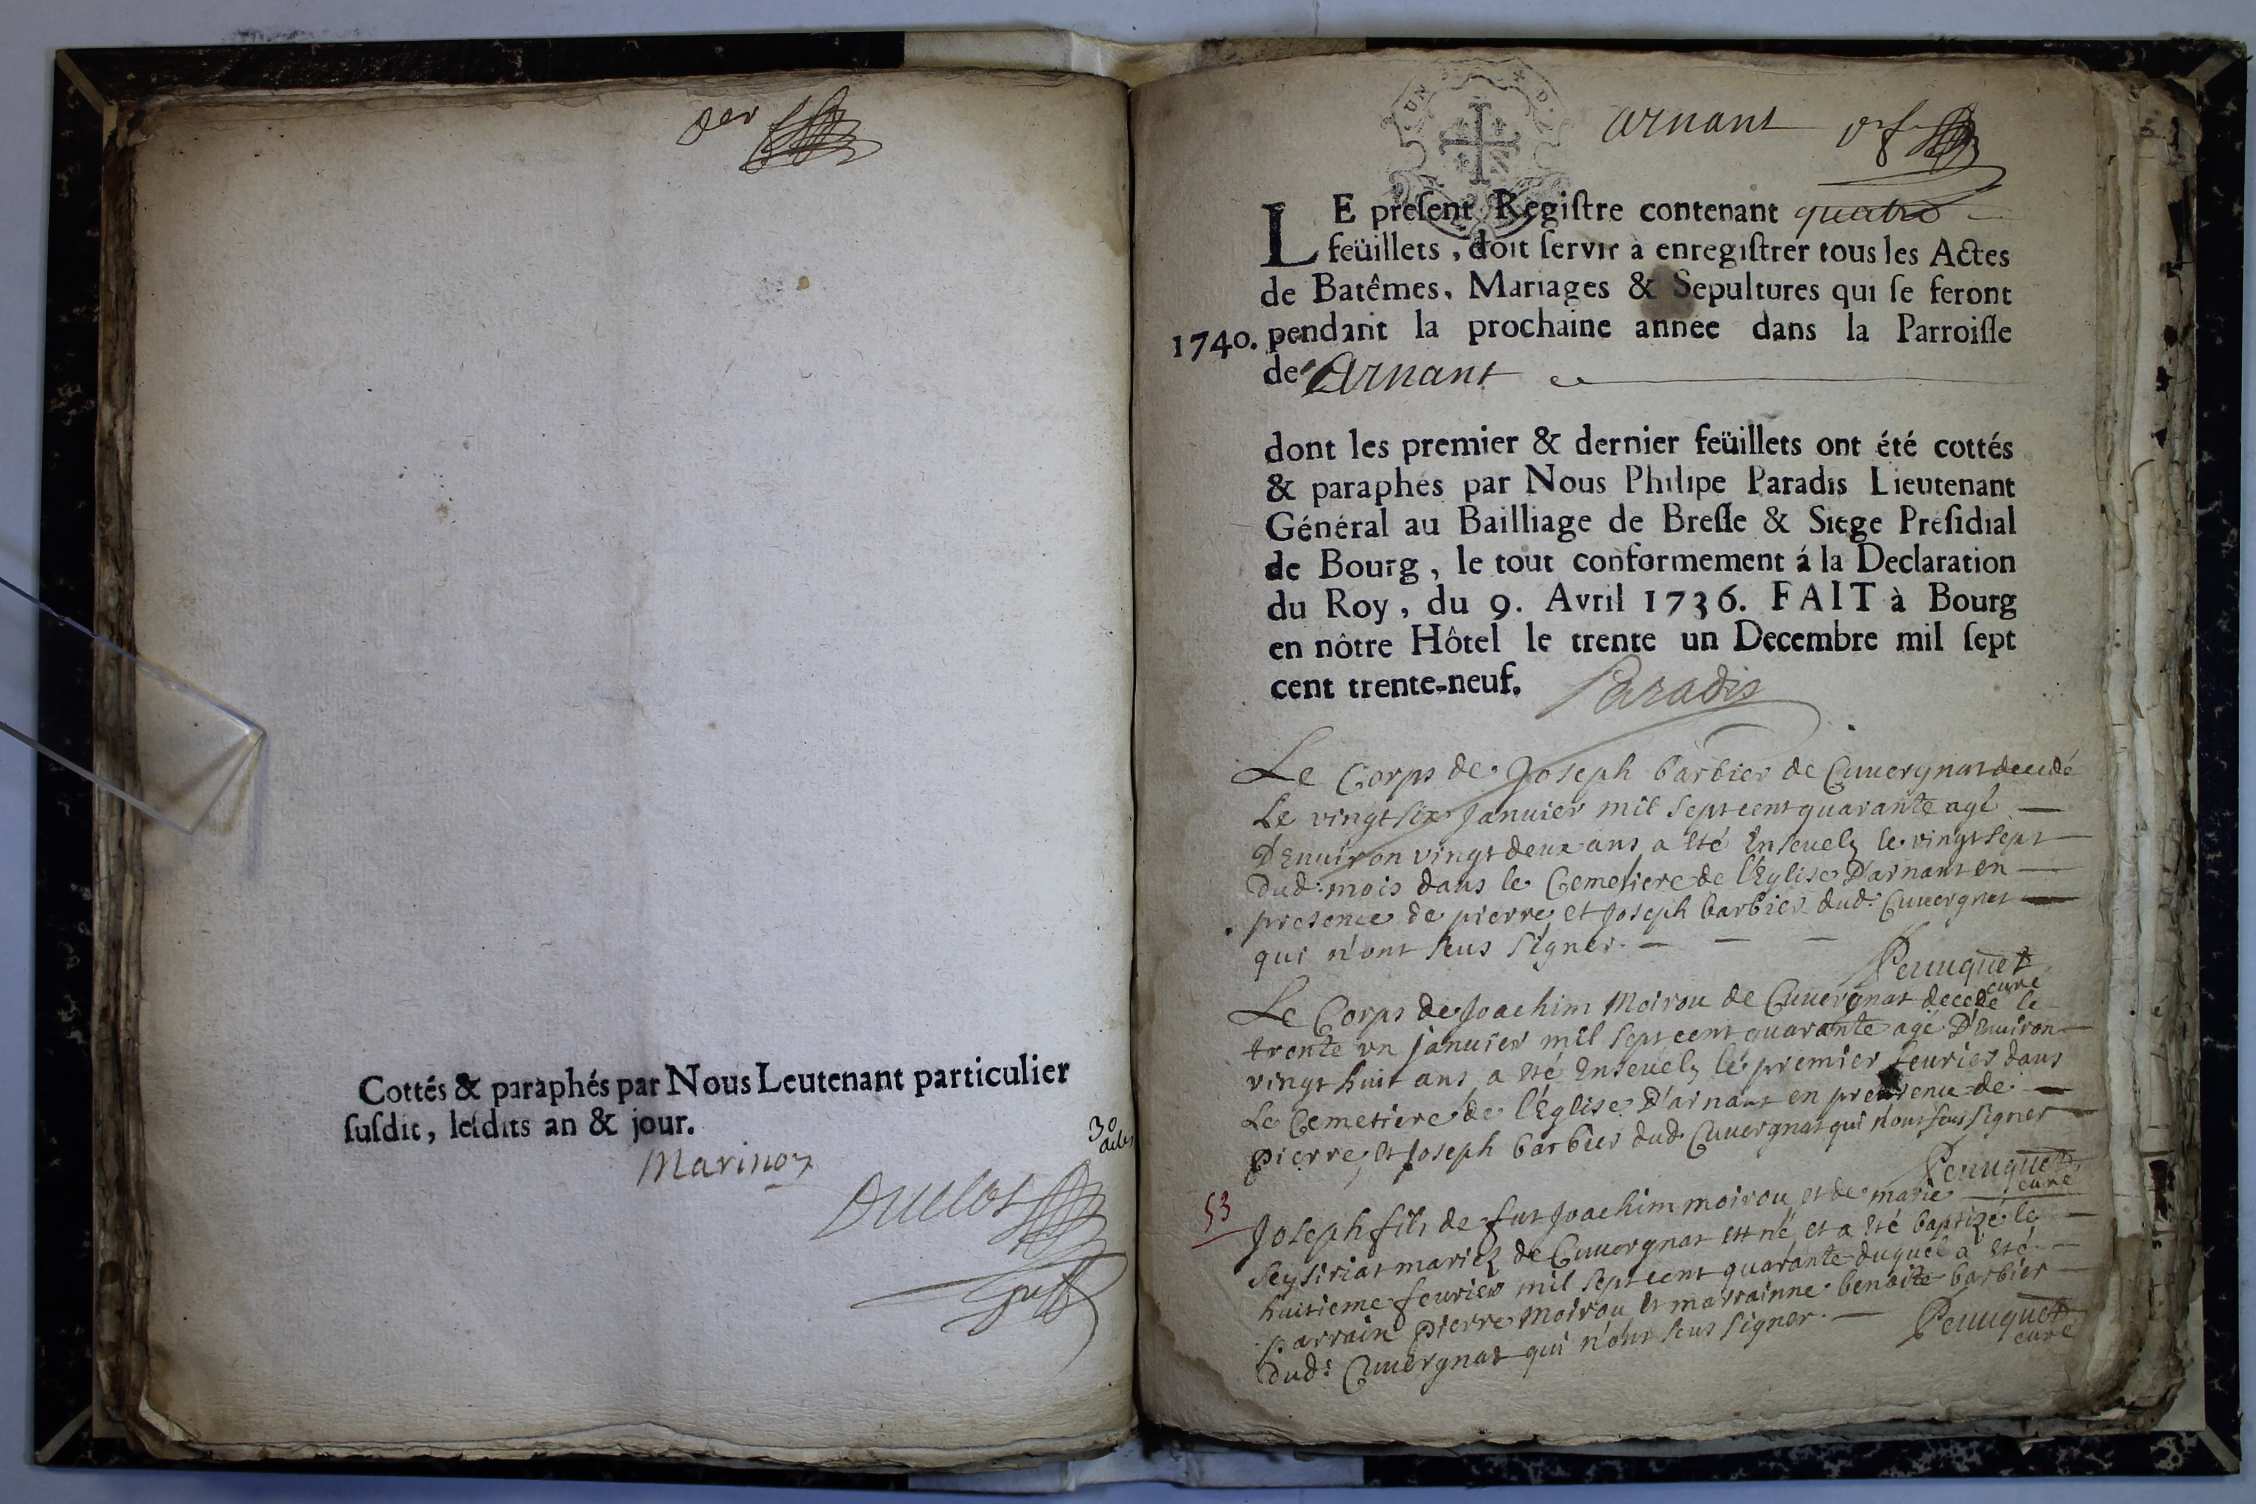 der
Cottés & paraphés par Nous Leutenant particulier
susdit, lesdits an & jour.
30
Marinon
Duclos
arnant
LE present Registre contenant quatre
feüillets, doit servir à enregistrer tous les Actes
de Batêmes, Mariages & Sepultures qui se feront
1740. pendant la prochaine année dans la Parroisse
de Arnant
dont les premier & dernier feüillets ont été cottés
& paraphés par Nous Philipe Paradis Lieutenant
Général au Bailliage de Bresse & Siege Présidial
de Bourg, le tout conformement á la Declaration
du Roy, du 9. Avril 1736. FAIT à Bourg
en nôtre Hôtel le trente un Decembre mil sept
cent trente-neuf. Paradis
Le Corps de Joseph barbier de Cuuergnat decedé
Le vingt six Januier mil sept cent quarante agé
D'Enuiron vingt deux ans a été Enseuely le vingt sept
dud: mois dans le Cemetiere de l'Eglise D'arnant en
presence de pierre et Joseph barbier dud: Cuuergnat
qui n'ont seus signer.
Peruquet
curé
Le Corps de Joachim Moirou de Cuuergnat decedé le
trente vn januier mil sept cent quarante agé D'Enuiron
vingt huit ans a été Enseuely le premier feurier dans
Le Cemetiere de l'Eglise D'arnant en presence de
pierre et Joseph barbier dud: Cuuergnat qui n'ont seus signer
Peruquet
curé
53
Joseph fils de fut Joachim moirou et de marie
Seysiriat mariez de Cuuergnat est né et a été baptizé le
huitieme feurier mil sept cent quarante duquel a été
parrain pierre Moirou et marrainne benoite barbier
dud: Cuuergnat qui n'ont seus signer.
Peruquet
curé